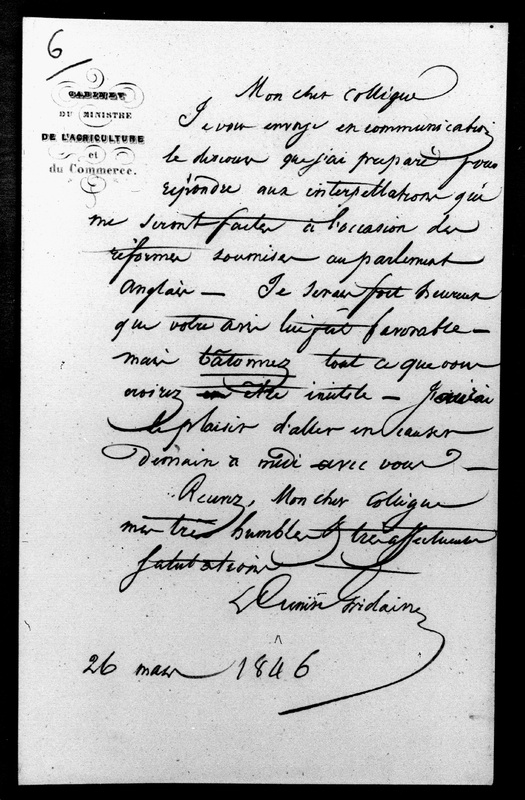 6
CABINET
DU MINISTRE
DE L'AGRICULTURE
et
du Commerce.
Mon cher Collègue
Je vous envoye en communication
le discours que j'ai preparé pour
répondre aux interpellations qui
me seront faites à l'occasion des
réformes soumises au parlement
Anglais — Je serais fort heureux
que votre avis lui fût favorable —
mais bâtonnez tout ce que vous
croirez en être inutile — J'aurai
le plaisir d'aller en causer
Demain à midi avec vous —
Recevez, Mon cher Collègue
mes très humbles & très affectueuses
salutations
L Cunin Gridaine
26 mars 1846